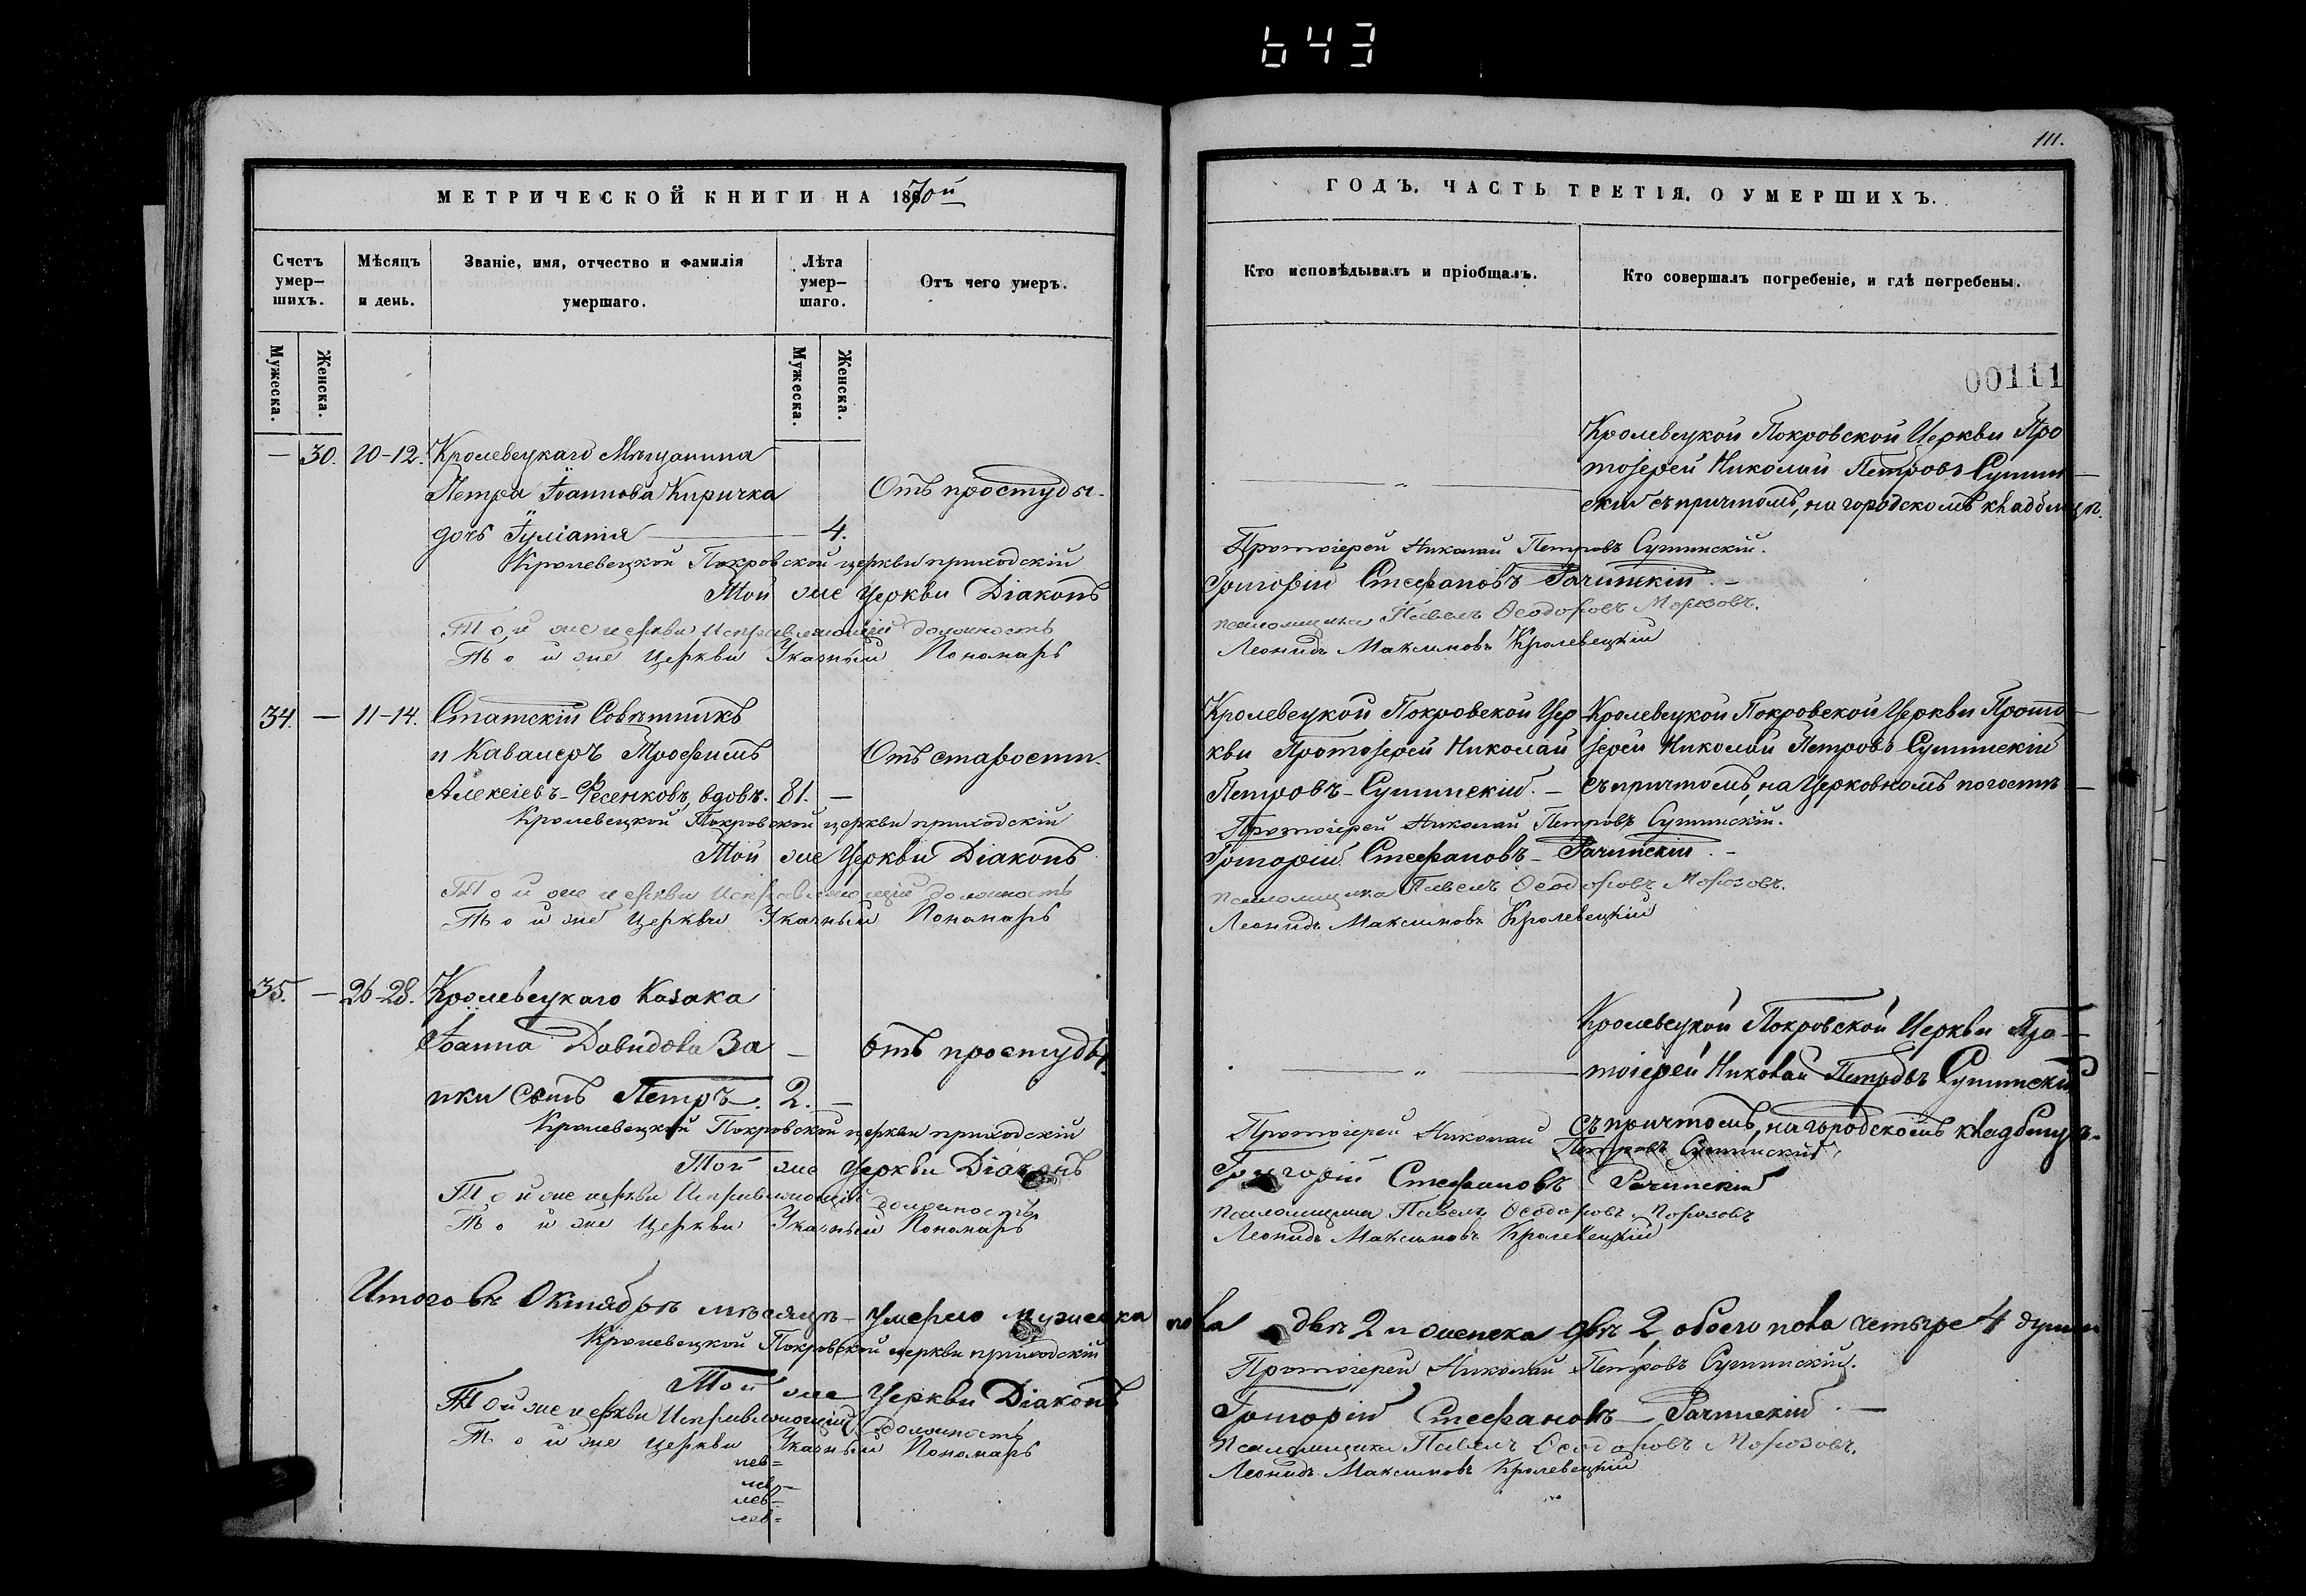 643
МЕТРИЧЕСКОЙ КНИГИ НА 1870й
Счетъ умер-шихъ.
Мѣсяцъ и день.
Званіе, имя, отчество и фамилія умершаго.
Лѣта умер-шаго.
Отъ чего умеръ.
Мужеска.
Женска.
Мужеска.
Женска.
— 30. 10-12. Кролевецкаго Мѣщанина
Петра Іоаннова Киричка
дочь Іуліанія — 4.
Отъ простуды.
Кролевецкой Покровской церкви приходскій
Той же Церкви Діаконъ
Той же церкви Исправляющій должность
Той же Церкви Указный Пономарь
34. — 11-14. Статскій Совѣтникъ
и Кавалеръ Трофимъ
Алексіевъ-Фесенковъ, вдовъ. 81. —
Отъ старости.
Кролевецкой Покровской церкви приходскій
Той же Церкви Діаконъ
Той же церкви Исправляющій должность
Той же Церкви Указный Пономарь
35. — 26-28. Кролевецкаго Казака
Іоанна Давидова За
ики сынъ Петръ. 2. —
отъ простуды.
Кролевецкой Покровской церкви приходскій
Той же Церкви Діаконъ
Той же церкви Исправляющій должность
Той же Церкви Указный Пономарь
Итого въ Октябрѣ мѣсяцѣ — умерло мужеска
Кролевецкой Покровской церкви приходскій
Той же Церкви Діаконъ
Той же церкви Исправляющій должность
Той же Церкви Указный Пономарь
111.
ГОДЪ. ЧАСТЬ ТРЕТІЯ. О УМЕРШИХЪ.
Кто исповѣдывалъ и пріобщалъ.
Кто совершалъ погребеніе, и гдѣ погребены.
00111
Кролевецкой Покровской Церкви Про
тоіерей Николай Петровъ Сушин
скій съ причтомъ, на городскомъ кладбищѣ.
Протоіерей Николай Петровъ Сушинскій.
Григорій Стефановъ Рачинскій. —
псаломщика Павелъ Ѳеодоровъ Морозовъ.
Леонидъ Максимовъ Кролевецкій
Кролевецкой Покровской Цер
кви Протоіерей Николай
Петровъ-Сушинскій. —
Кролевецкой Покровской Церкви Прото
іерей Николай Петровъ Сушинскій
съ причтомъ, на Церковномъ погостѣ
Протоіерей Николай Петровъ Сушинскій.
Григорій Стефановъ-Рачинскій. —
псаломщика Павелъ Ѳеодоровъ Морозовъ.
Леонидъ Максимовъ Кролевецкій
Кролевецкой Покровской Церкви Про-
тоіерей Николай Петровъ Сушинскій
съ причтомъ, на городскомъ кладбищѣ.
Протоіерей Николай Петровъ Сушинскій.
Григорій Стефановъ Рачинскій
псаломщика Павелъ Ѳеодоровъ Морозовъ
Леонидъ Максимовъ Кролевецкій
пола двѣ 2 и женска двѣ 2, обоего пола четыре 4 души
Протоіерей Николай Петровъ Сушинскій.
Григорій Стефановъ — Рачинскій. —
псаломщика Павелъ Ѳеодоровъ Морозовъ.
Леонидъ Максимовъ Кролевецкій